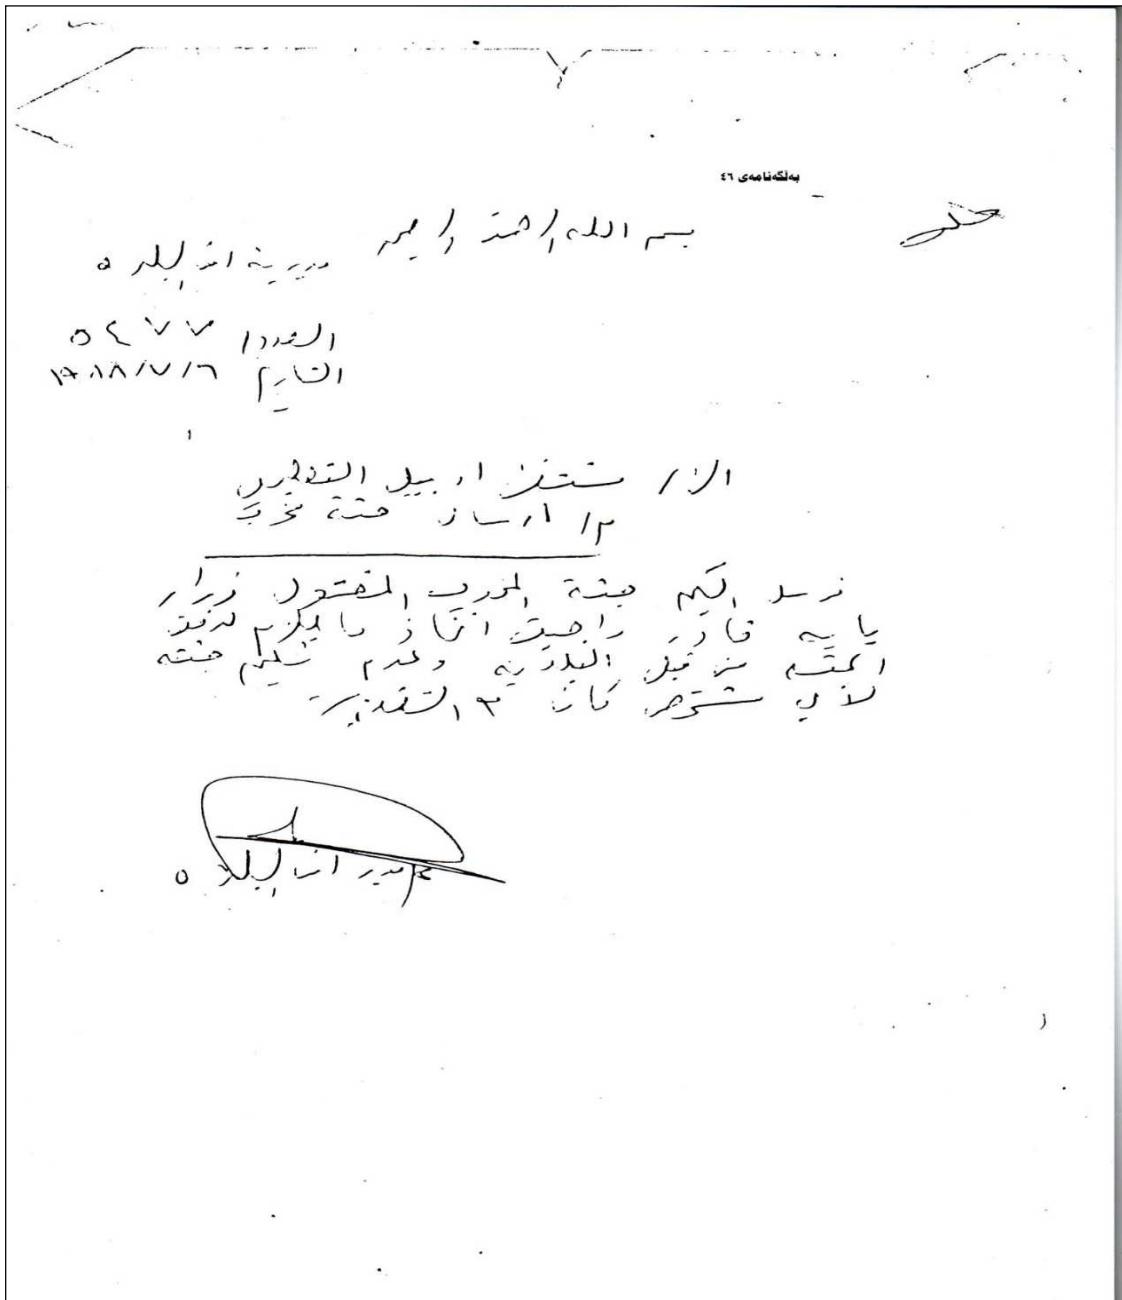 بەڵگەنامەی ٤٦
بسم الله الرحمن الرحيم
مديرية امن البلدة
العدد/ ٥٤٧٧
التاريخ ١٩٨٨/٧/٦
الى/ مستشفى اربيل التعليمي
م/ ارسال جثة مخرب
نرسل اليكم جثة المخرب المقتول نزار
بايه قادر راجين اتخاذ ما يلزم لدفن
الجثة من قبل البلدية وعدم تسليم جثته
لأي شخص كان مع التقدير
مدير امن البلدة